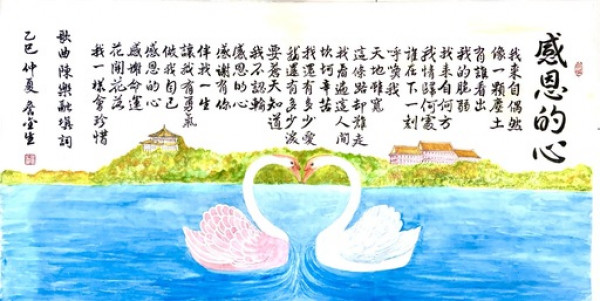 感恩的心
我來自偶然
像一顆塵土
有誰看出
我的脆弱
我來自何方
我情歸何處
誰在下一刻
呼喚我
天地雖寬
這條路却難走
我看遍這人間
坎坷辛苦
我還有多少愛
我還有多少淚
要蒼天知道
我不認輸
感恩的心
感謝有你
伴我一生
讓我有勇氣
做我自己
感恩的心
感謝命運
花開花落
我一樣會珍惜
歌曲陳樂融填詞
乙巳仲夏